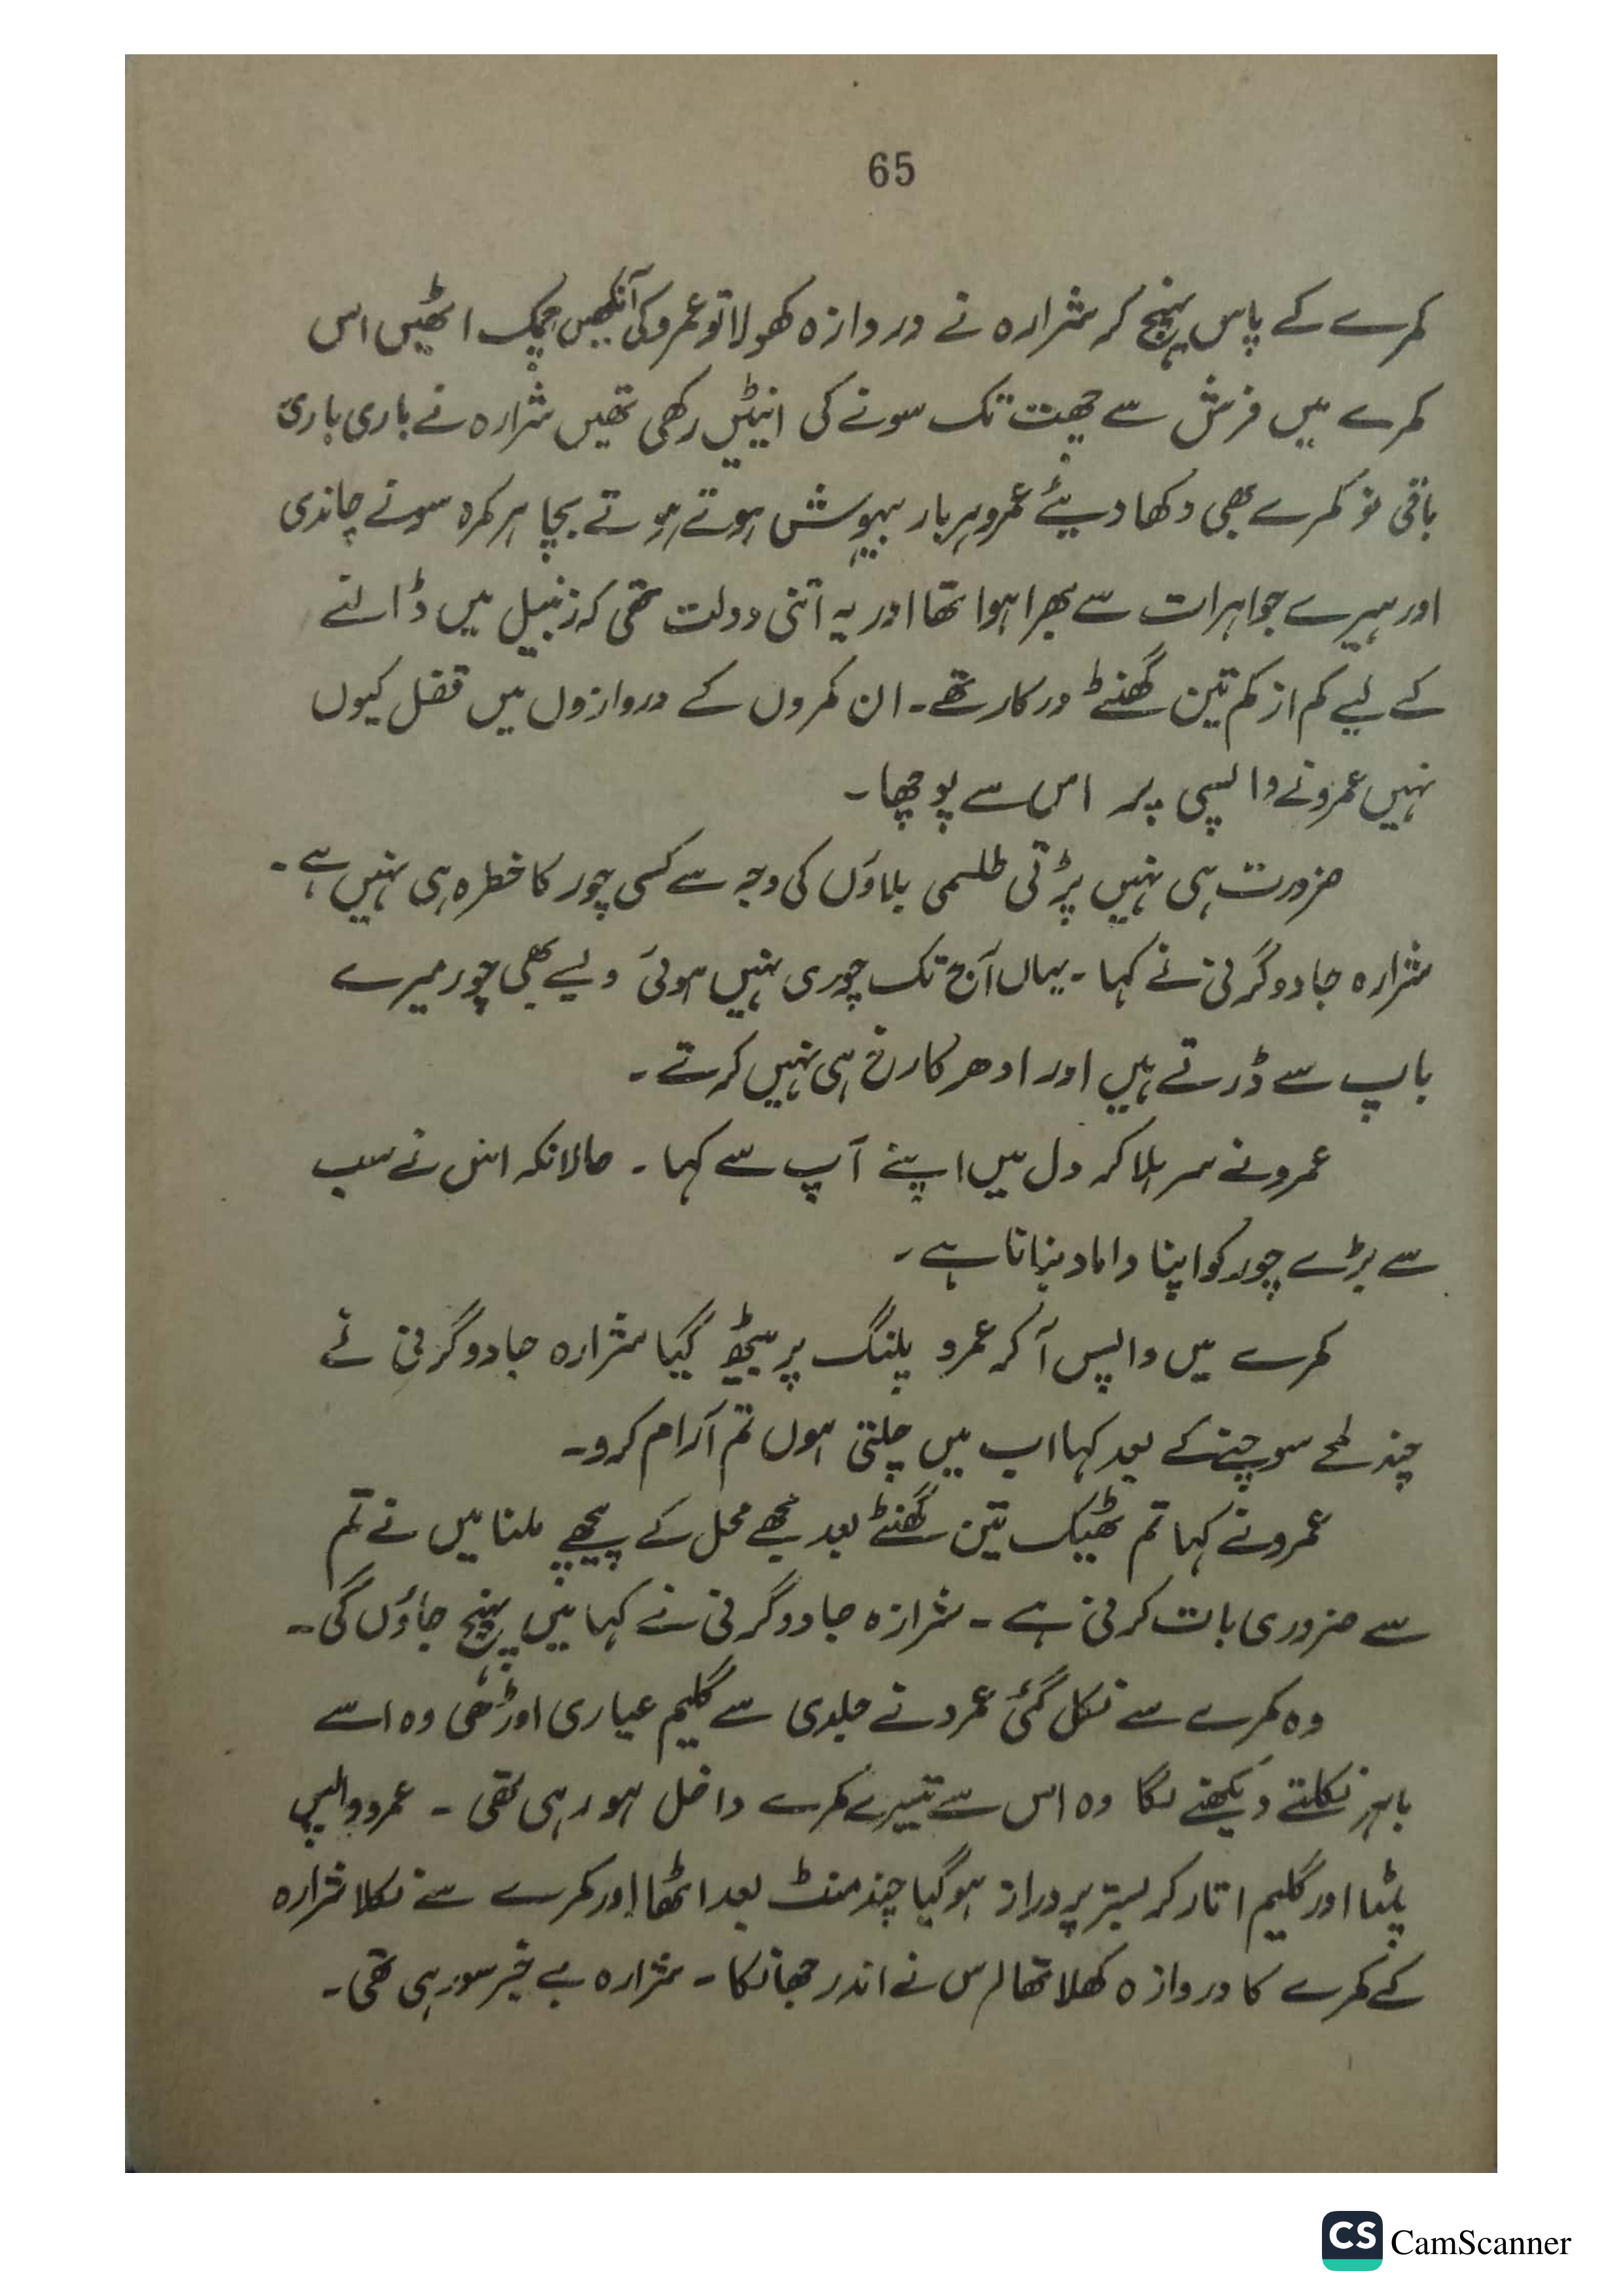 65
کمرے کے پاس پہنچ کر شرارہ نے دروازہ کھولا تو عمرو کی آنکھیں چمک اٹھیں اس
کمرے میں فرش سے چھت تک سونے کی اینٹیں رکھی تھیں شرارہ نے باری باری
باقی نو کمرے بھی دکھا دیئے عمرو ہر بار بیہوش ہوتے ہوتے بچا ہر کمرہ سونے چاندی
اور ہیرے جواہرات سے بھرا ہوا تھا اور یہ اتنی دولت تھی کہ زنبیل میں ڈالنے
کے لیے کم از کم تین گھنٹے درکار تھے۔ ان کمروں کے دروازوں میں قفل کیوں
نہیں عمرو نے واپسی پر اس سے پوچھا۔
ضرورت ہی نہیں پڑتی طلسمی بلاؤں کی وجہ سے کسی چور کا خطرہ ہی نہیں ہے۔
شرارہ جادوگرنی نے کہا۔ یہاں آج تک چوری نہیں ہوئی ویسے بھی چور میرے
باپ سے ڈرتے ہیں اور ادھر کا رخ ہی نہیں کرتے۔
عمرو نے سر ہلا کر دل میں اپنے آپ سے کہا۔ حالانکہ اس نے سب
سے بڑے چور کو اپنا داماد بنانا ہے۔
کمرے میں واپس آ کر عمرو پلنگ پر بیٹھ گیا شرارہ جادوگرنی نے
چند لمحے سوچنے کے بعد کہا اب میں چلتی ہوں تم آرام کرو۔
عمرو نے کہا تم ٹھیک تین گھنٹے بعد مجھے محل کے پیچھے ملنا میں نے تم
سے ضروری بات کرنی ہے۔ شرارہ جادوگرنی نے کہا میں پہنچ جاؤں گی۔
وہ کمرے سے نکل گئی عمرو نے جلدی سے گلیم عیاری اوڑھی وہ اسے
باہر نکلتے دیکھنے لگا وہ اس سے تیسرے کمرے داخل ہو رہی تھی۔ عمرو واپس
پلٹا اور گلیم اتار کر بستر پر دراز ہو گیا چند منٹ بعد اٹھا اور کمرے سے نکلا شرارہ
کے کمرے کا دروازہ کھلا تھا اس نے اندر جھانکا۔ شرارہ بے خبر سو رہی تھی۔
CS CamScanner